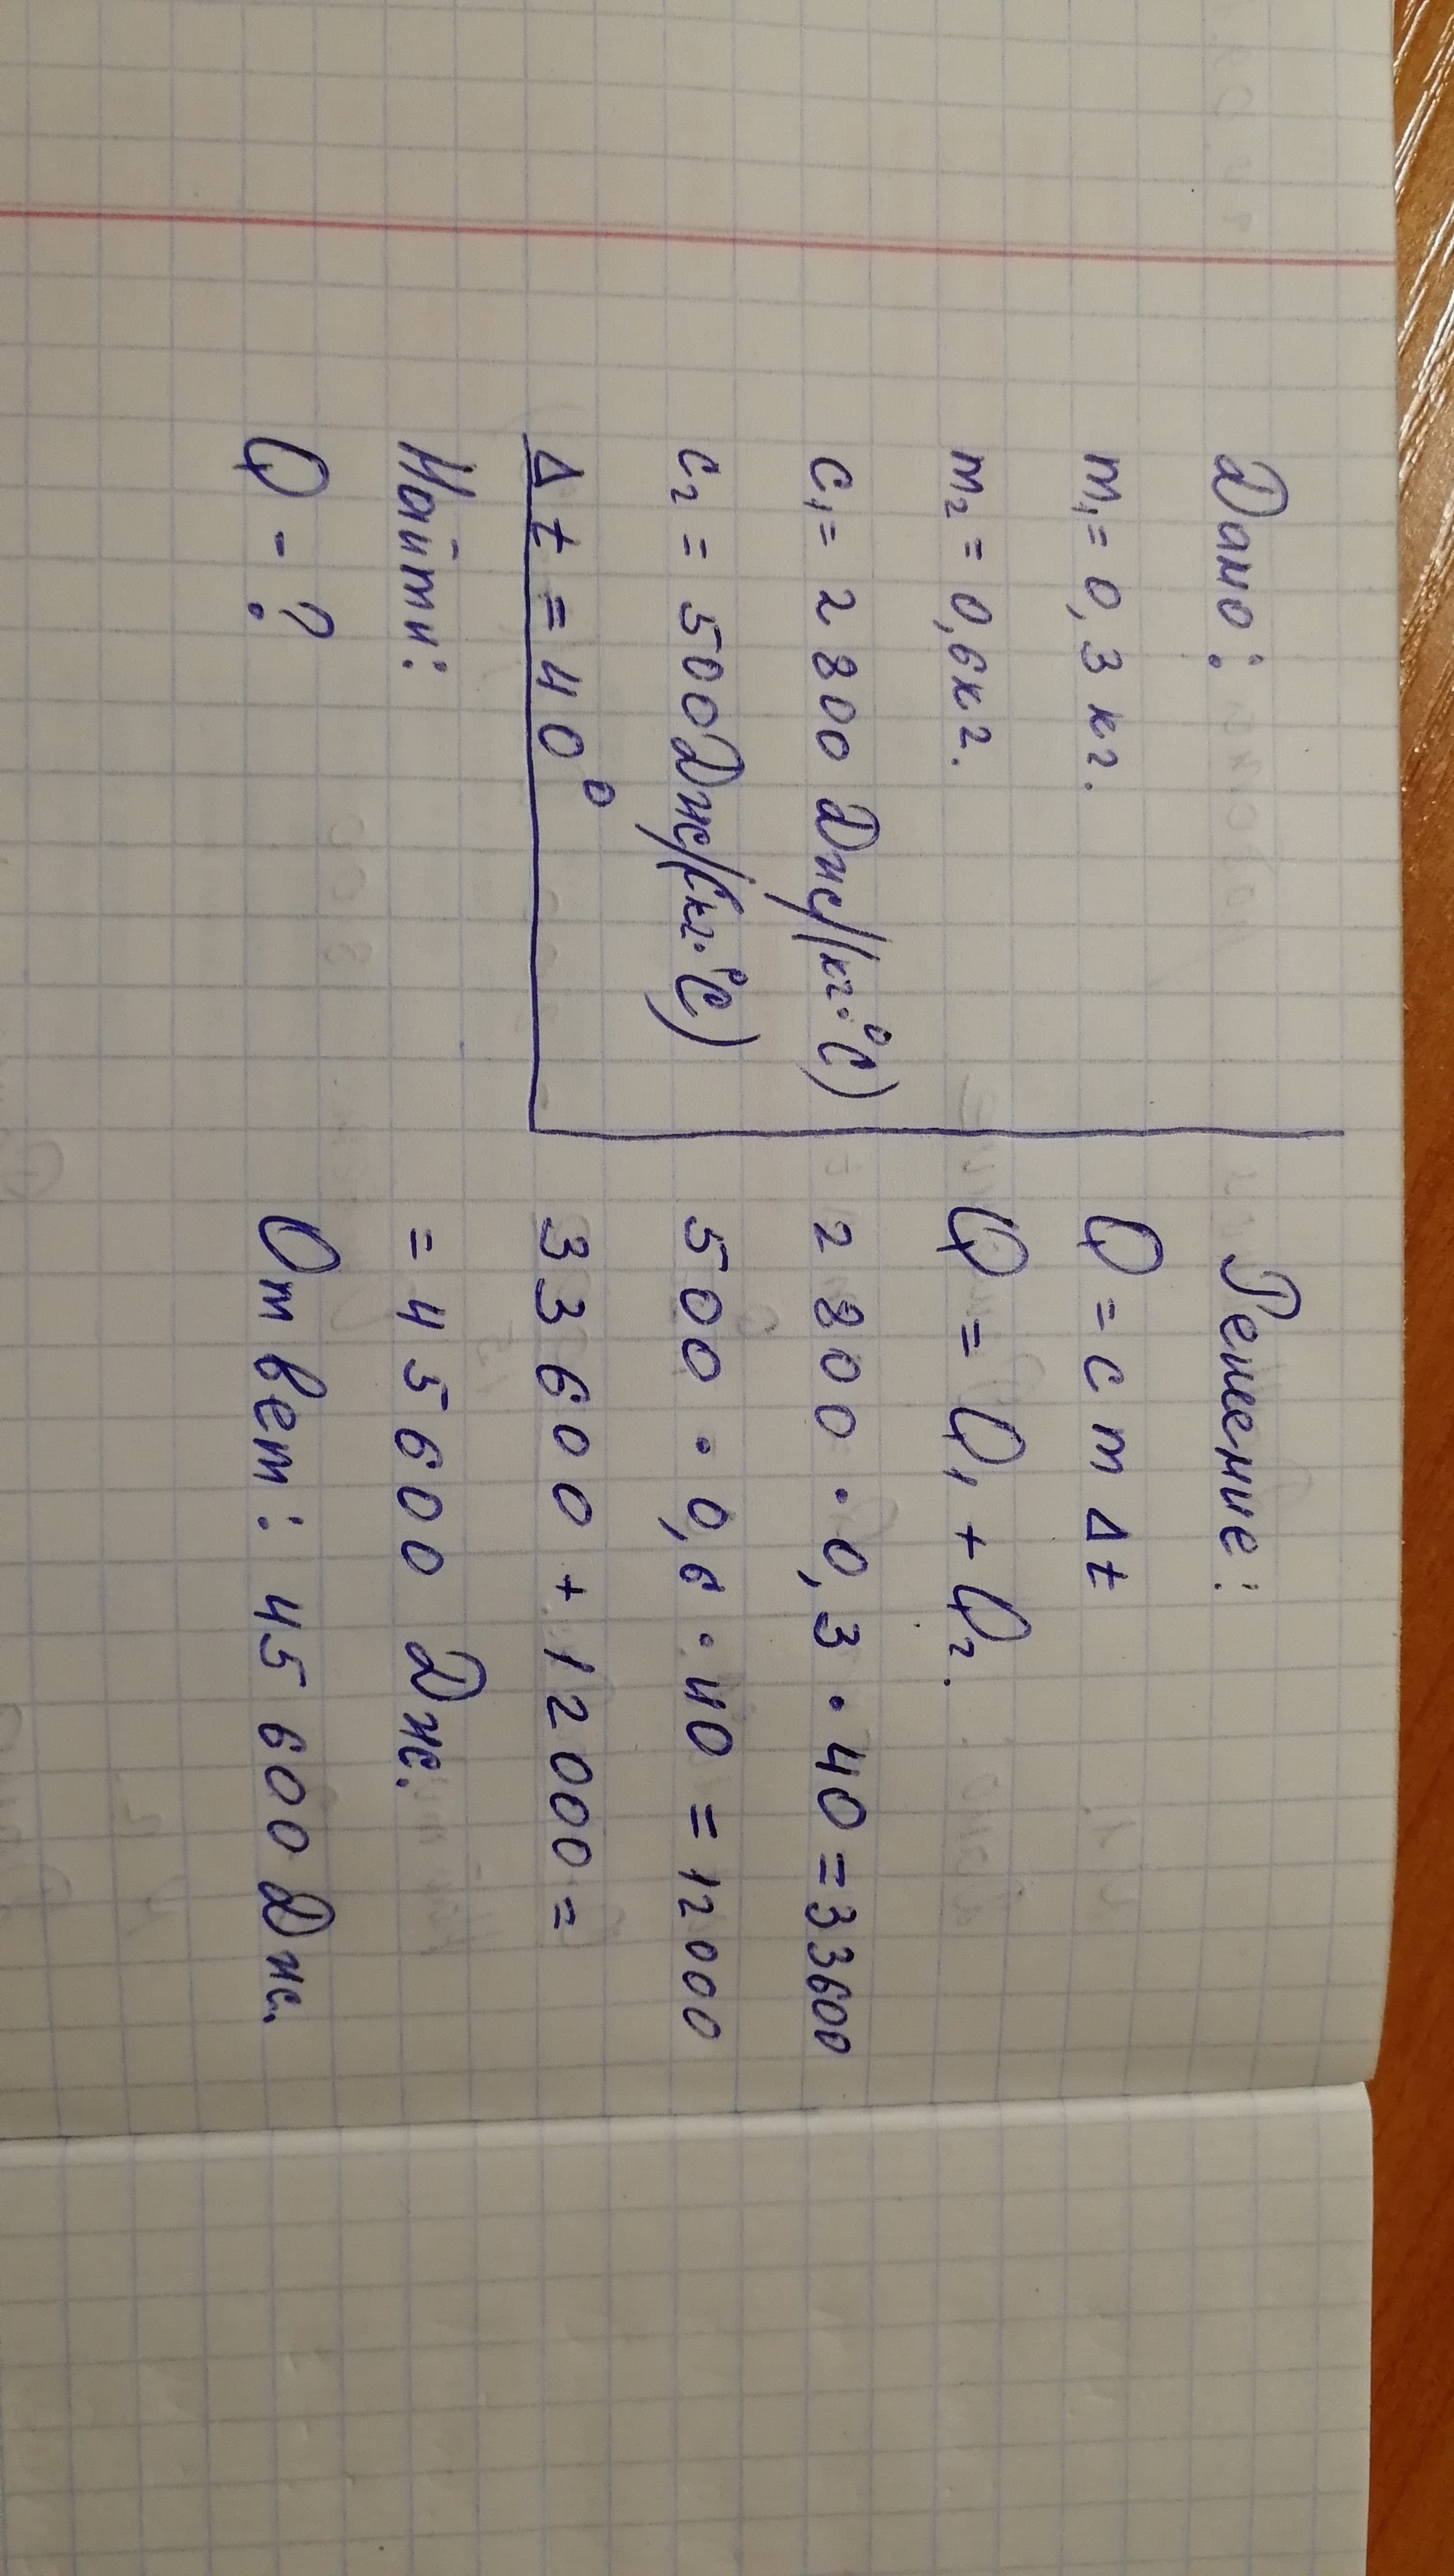 Дано:
m₁ = 0,3 кг.
m₂ = 0,6 кг.
c₁ = 2 800 Дж/(кг·°C)
c₂ = 500 Дж/(кг·°C)
Δt = 40°
Найти:
Q - ?
Решение:
Q = c m Δt
Q = Q₁ + Q₂.
2 800 · 0,3 · 40 = 33600
500 · 0,6 · 40 = 12000
33600 + 12000 =
= 45600 Дж.
Ответ: 45 600 Дж.